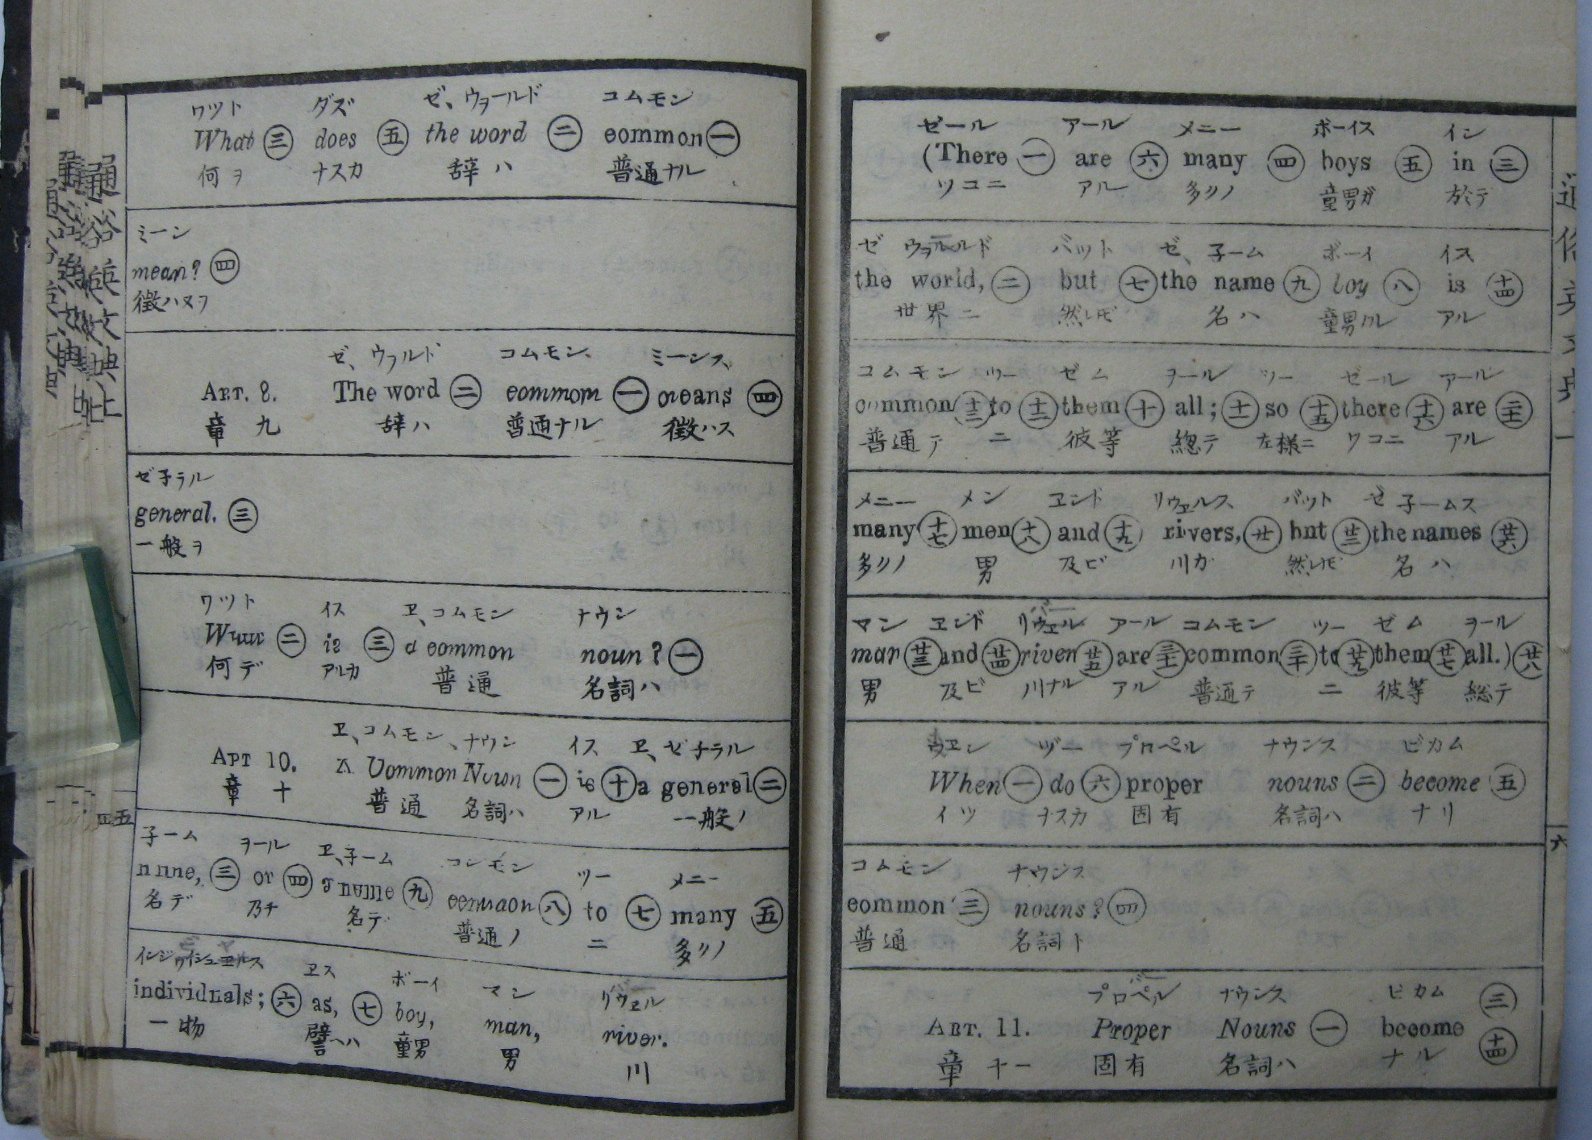 ワツト ダズ ゼ、ウヲールド コムモン
What 三 does 五 the word 二 eommon 一
何ヲ ナスカ 辞ハ 普通ナル
ミーン
mean? 四
徴ハスヲ
ゼ、ウヲルド コムモン ミーンス
ART. 8. The word 二 eommom 一 means 四
章九 辞ハ 普通ナル 徴ハス
ゼ子ラル
general. 三
一般ヲ
ワツト イス ヱ、コムモン ナウン
二 is 三 a eommon noun? 一
何デ アルカ 普通 名詞ハ
ヱ、コムモン、ナウン イス ヱ、ゼ子ラル
ART 10. A Uommon Noun 一 is 十 a general 二
章十 普通 名詞ハ アル 一般ノ
子ーム ヲール ヱ、子ーム コムモン ツー メニー
三 or 四 a name 九 八 to 七 many 五
名デ 乃チ 名デ 普通ノ ニ 多クノ
ヱス ボーイ マン リヴェル
individnals; 六 as, 七 boy, man, river.
一物 譬ヘハ 童男 男 川
ゼール アール メニー ボーイス イン
(There 一 are 六 many 四 boys 五 in 三
ソコニ アル 多クノ 童男ガ 於テ
ゼ ウヲールド バット ゼ、子ーム ボーイ イス
the world, 二 but 七 the name 九 boy 八 is 十四
世界ニ 然レモ 名ハ 童男ナル アル
コムモン ツー ゼム ヲール ソー ゼール アール
common 十三 to 十二 them 十 all; 十一 so 十五 there 十六 are
普通テ ニ 彼等 總テ 左様ニ ソコニ アル
メニー メン ヱンド リヴェルス バット ゼ 子ームス
many 十七 men 十八 and 十九 rivers, 廿 bnt the names 廿六
多クノ 男 及ビ 川ガ 然レモ 名ハ
マン ヱンド リヴェル アール コムモン ツー ゼム ヲール
man 廿三 and 廿四 riven 廿五 are common 三十 to 廿九 them 廿七 all.) 廿八
男 及ビ 川ナル アル 普通テ ニ 彼等 総テ
ウヱン ヅー プロペル ナウンス ビカム
When 一 do 六 proper nouns 二 become 五
イツ ナスカ 固有 名詞ハ ナリ
コムモン ナウンス
eommon 三 nouns? 四
普通 名詞ト
プロペル ナウンス ビカム 三
ART. 11. Proper Nouns 一 beeome 十四
章十一 固有 名詞ハ ナル
六